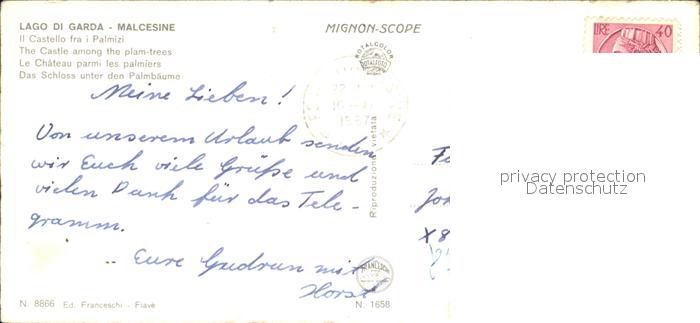 LAGO DI GARDA - MALCESINE
Il Castello fra i Palmizi
The Castle among the plam-trees
Le Château parmi les palmiers
Das Schloss unter den Palmbäume
MIGNON-SCOPE
ROTALCOLOR
ROTALFOTO
LIRE 40
Meine Lieben!
Von unserem Urlaub senden
wir Euch viele Grüße und
vielen Dank für das Tele-
gramm.
Eure Gudrun mit
Horst
Riproduzione vietata
privacy protection
Datenschutz
N. 8866 Ed. Franceschi - Fiavè
N. 1658